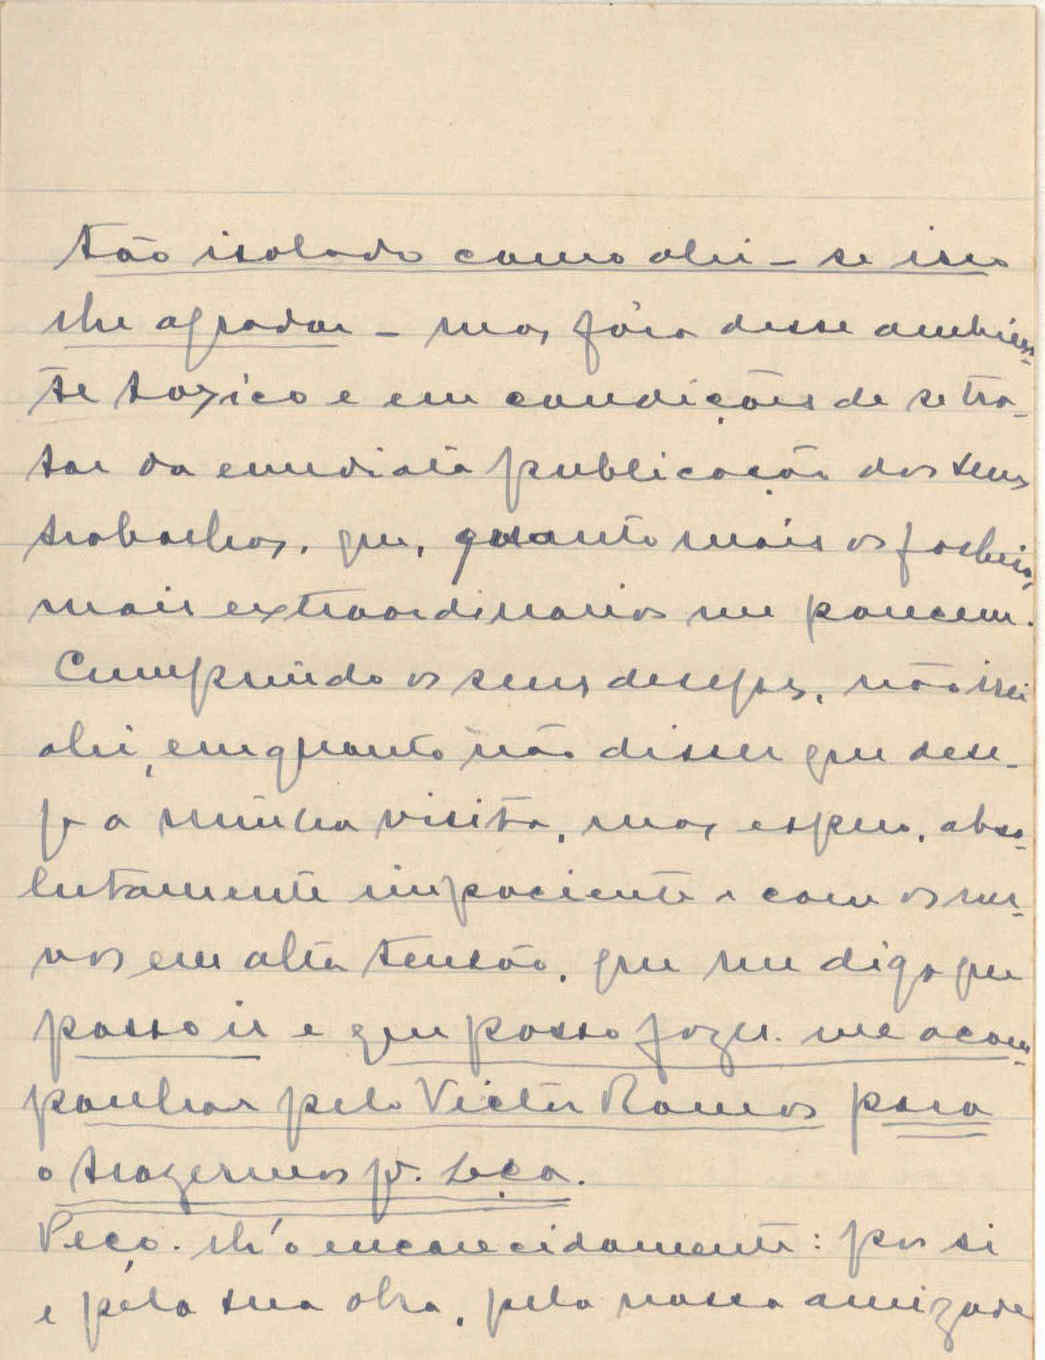 tão isolado como ahi - se isso
lhe agradar - mas fóra desse ambien-
te toxico e em condições de se tra-
tar da emediata publicação dos seus
trabalhos, que, quanto mais os folheio,
mais extraordinarios me parecem.
Cumprindo os seus desejos, não irei
ahi, emquanto não disser que dese-
ja a minha visita, mas espero, abso-
lutamente impaciente e com os ner-
vos em alta tensão, que me diga que
posso ir e que posso fazer-me acom-
panhar pelo Victor Ramos para
o trazermos p. Leça.
Peço-lh'o encarecidamente: por si
e pela sua obra, pela nossa amizade